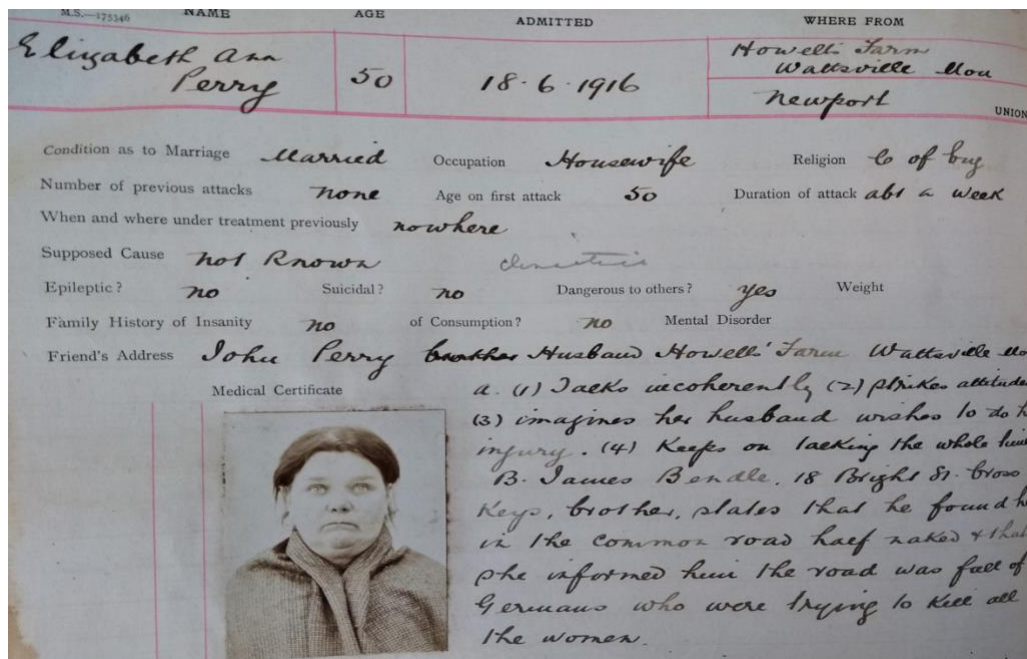 M.S.—175346 NAME AGE ADMITTED WHERE FROM
Elizabeth Ann Perry 50 18·6·1916 Howells Farm
Wattsville Mon
Newport UNION
Condition as to Marriage Married Occupation Housewife Religion C of Eng
Number of previous attacks none Age on first attack 50 Duration of attack abt a week
When and where under treatment previously nowhere
Supposed Cause not known
Epileptic? no Suicidal? no Dangerous to others? yes Weight
Family History of Insanity no of Consumption? no Mental Disorder
Friend's Address John Perry brother Husband Howells' Farm Wattsville
Medical Certificate a. (1) Talks incoherently (2) strikes attitudes
(3) imagines her husband wishes to do
injury. (4) Keeps on talking the whole
B. James Bendle, 18 Bright St. Cross
Keys, brother, states that he found
in the common road half naked & that
she informed him the road was full of
Germans who were trying to kill all
the women.